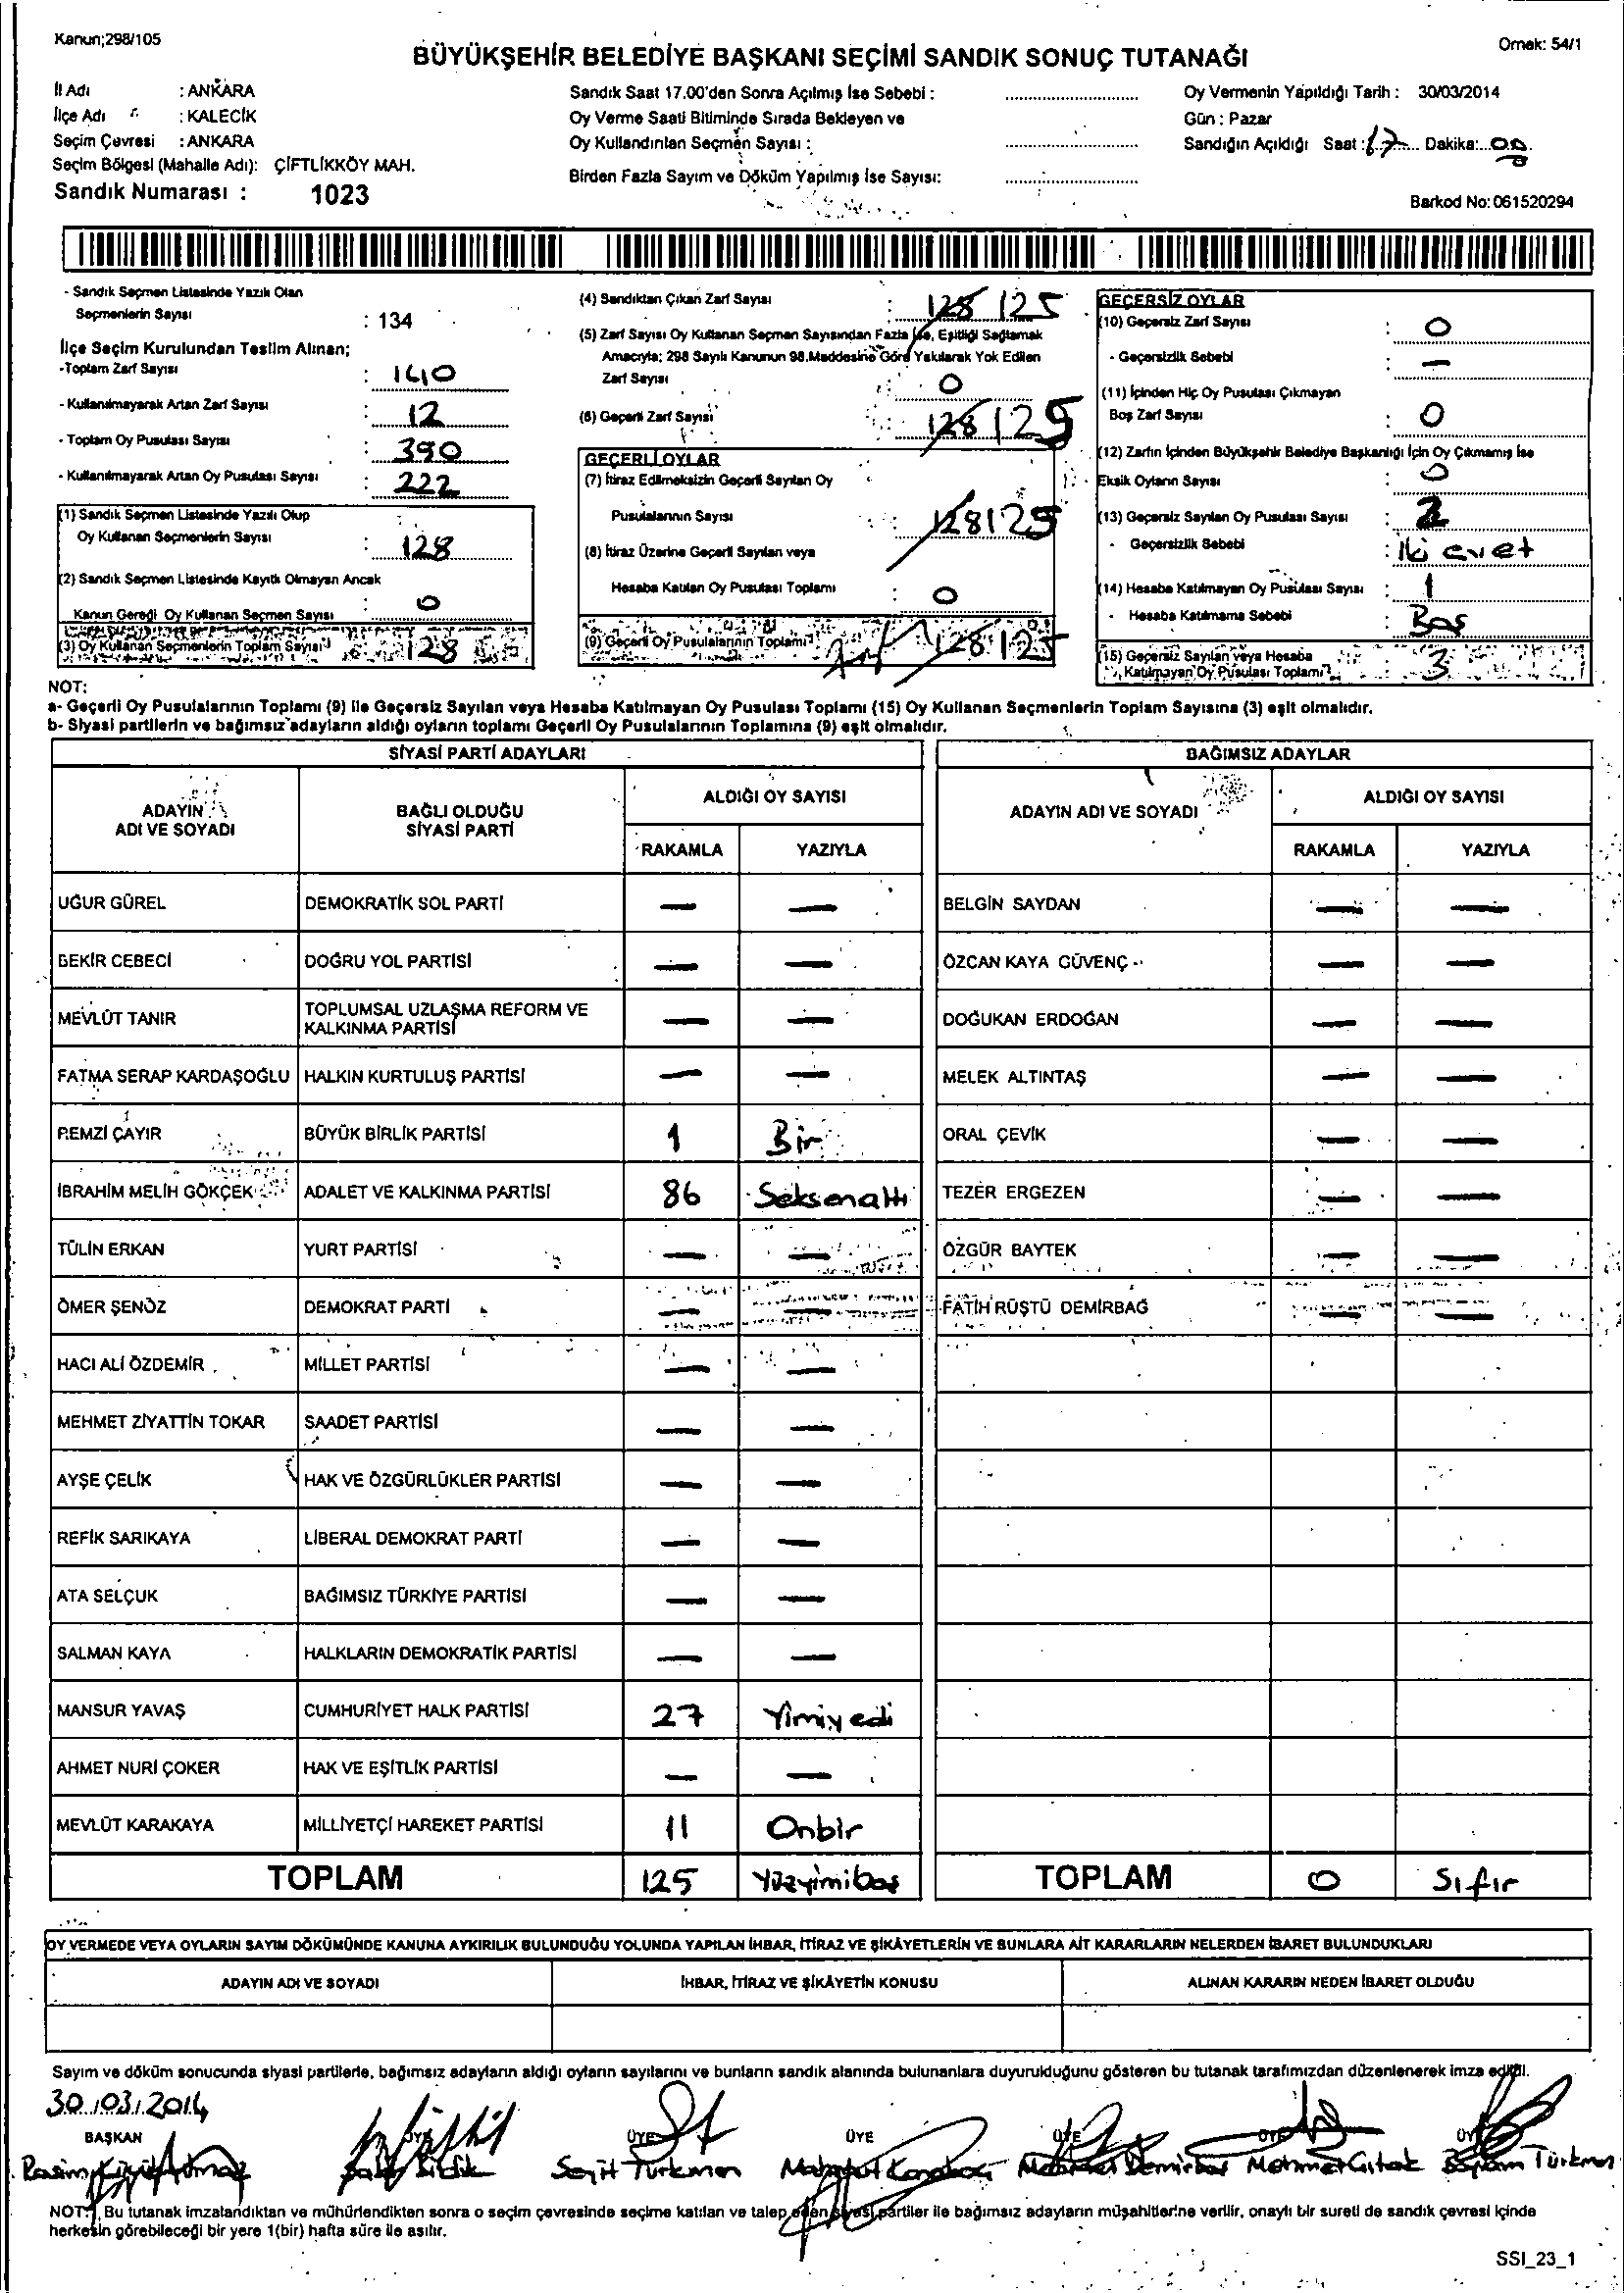 Kanun;298/105
Örnek: 54/1
BÜYÜKŞEHİR BELEDİYE BAŞKANI SEÇİMİ SANDIK SONUÇ TUTANAĞI
İl Adı : ANKARA
İlçe Adı : KALECİK
Seçim Çevresi : ANKARA
Seçim Bölgesi (Mahalle Adı): ÇİFTLİKKÖY MAH.
Sandık Numarası : 1023
Sandık Saat 17.00'den Sonra Açılmış İse Sebebi :
Oy Verme Saati Bitiminde Sırada Bekleyen ve
Oy Kullandırılan Seçmen Sayısı :
Birden Fazla Sayım ve Döküm Yapılmış İse Sayısı:
Oy Vermenin Yapıldığı Tarih : 30/03/2014
Gün : Pazar
Sandığın Açıldığı Saat : 17 Dakika: 00
Barkod No: 061520294
- Sandık Seçmen Listesinde Yazılı Olan
Seçmenlerin Sayısı : 134
İlçe Seçim Kurulundan Teslim Alınan;
-Toplam Zarf Sayısı : 140
- Kullanılmayarak Artan Zarf Sayısı : 12
- Toplam Oy Pusulası Sayısı : 390
- Kullanılmayarak Artan Oy Pusulası Sayısı : 222
(1) Sandık Seçmen Listesinde Yazılı Olup
Oy Kullanan Seçmenlerin Sayısı : 128
(2) Sandık Seçmen Listesinde Kayıtlı Olmayan Ancak
Kanun Gereği Oy Kullanan Seçmen Sayısı : 0
(3) Oy Kullanan Seçmenlerin Toplam Sayısı 128
(4) Sandıktan Çıkan Zarf Sayısı : 128 125
(5) Zarf Sayısı Oy Kullanan Seçmen Sayısından Fazla İse, Eşitliği Sağlamak
Amacıyla; 298 Sayılı Kanunun 98.Maddesine Göre Yakılarak Yok Edilen
Zarf Sayısı : 0
(6) Geçerli Zarf Sayısı : 128 125
GEÇERLİ OYLAR
(7) İtiraz Edilmeksizin Geçerli Sayılan Oy
Pusulalarının Sayısı : 128 125
(8) İtiraz Üzerine Geçerli Sayılan veya
Hesaba Katılan Oy Pusulası Toplamı : 0
(9) Geçerli Oy Pusulalarının Toplamı 128 125
GEÇERSİZ OYLAR
(10) Geçersiz Zarf Sayısı : 0
- Geçersizlik Sebebi : —
(11) İçinden Hiç Oy Pusulası Çıkmayan
Boş Zarf Sayısı : 0
(12) Zarfın İçinden Büyükşehir Belediye Başkanlığı İçin Oy Çıkmamış İse
Eksik Oyların Sayısı : 0
(13) Geçersiz Sayılan Oy Pusulası Sayısı : 2
- Geçersizlik Sebebi : İki evet
(14) Hesaba Katılmayan Oy Pusulası Sayısı : 1
- Hesaba Katılmama Sebebi : Boş
(15) Geçersiz Sayılan veya Hesaba
Katılmayan Oy Pusulası Toplamı : 3
NOT:
a- Geçerli Oy Pusulalarının Toplamı (9) ile Geçersiz Sayılan veya Hesaba Katılmayan Oy Pusulası Toplamı (15) Oy Kullanan Seçmenlerin Toplam Sayısına (3) eşit olmalıdır.
b- Siyasi partilerin ve bağımsız adayların aldığı oyların toplamı Geçerli Oy Pusulalarının Toplamına (9) eşit olmalıdır.
SİYASİ PARTİ ADAYLARI
BAĞIMSIZ ADAYLAR
ADAYIN ADI VE SOYADI
BAĞLI OLDUĞU SİYASİ PARTİ
ALDIĞI OY SAYISI
RAKAMLA YAZIYLA
ADAYIN ADI VE SOYADI
ALDIĞI OY SAYISI
RAKAMLA YAZIYLA
UĞUR GÜREL DEMOKRATİK SOL PARTİ — — BELGİN SAYDAN — —
BEKİR CEBECİ DOĞRU YOL PARTİSİ — — ÖZCAN KAYA GÜVENÇ — —
MEVLÜT TANIR TOPLUMSAL UZLAŞMA REFORM VE KALKINMA PARTİSİ — — DOĞUKAN ERDOĞAN — —
FATMA SERAP KARDAŞOĞLU HALKIN KURTULUŞ PARTİSİ — — MELEK ALTINTAŞ — —
REMZİ ÇAYIR BÜYÜK BİRLİK PARTİSİ 1 Bir ORAL ÇEVİK — —
İBRAHİM MELİH GÖKÇEK ADALET VE KALKINMA PARTİSİ 86 Seksenaltı TEZER ERGEZEN — —
TÜLİN ERKAN YURT PARTİSİ — — ÖZGÜR BAYTEK — —
ÖMER ŞENÖZ DEMOKRAT PARTİ — — FATİH RÜŞTÜ DEMİRBAĞ — —
HACI ALİ ÖZDEMİR MİLLET PARTİSİ — —
MEHMET ZİYATTİN TOKAR SAADET PARTİSİ — —
AYŞE ÇELİK HAK VE ÖZGÜRLÜKLER PARTİSİ — —
REFİK SARIKAYA LİBERAL DEMOKRAT PARTİ — —
ATA SELÇUK BAĞIMSIZ TÜRKİYE PARTİSİ — —
SALMAN KAYA HALKLARIN DEMOKRATİK PARTİSİ — —
MANSUR YAVAŞ CUMHURİYET HALK PARTİSİ 27 Yimiyedi
AHMET NURİ ÇOKER HAK VE EŞİTLİK PARTİSİ — —
MEVLÜT KARAKAYA MİLLİYETÇİ HAREKET PARTİSİ 11 Onbir
TOPLAM 125 Yüzyimibeş TOPLAM 0 Sıfır
OY VERMEDE VEYA OYLARIN SAYIM DÖKÜMÜNDE KANUNA AYKIRILIK BULUNDUĞU YOLUNDA YAPILAN İHBAR, İTİRAZ VE ŞİKÂYETLERİN VE BUNLARA AİT KARARLARIN NELERDEN İBARET BULUNDUKLARI
ADAYIN ADI VE SOYADI İHBAR, İTİRAZ VE ŞİKÂYETİN KONUSU ALINAN KARARIN NEDEN İBARET OLDUĞU
Sayım ve döküm sonucunda siyasi partilerle, bağımsız adayların aldığı oyların sayılarını ve bunların sandık alanında bulunanlara duyurulduğunu gösteren bu tutanak tarafımızdan düzenlenerek imza edildi.
30/03/2014
BAŞKAN ÜYE ÜYE ÜYE ÜYE ÜYE ÜYE
Rasim Seyit Türkmen Mehmet Demirbaş Mehmet Türkmen
NOT: Bu tutanak imzalandıktan ve mühürlendikten sonra o seçim çevresinde seçime katılan ve talep eden siyasi partiler ile bağımsız adayların müşahitlerine verilir, onaylı bir sureti de sandık çevresi içinde
herkesin görebileceği bir yere 1(bir) hafta süre ile asılır.
SSI_23_1